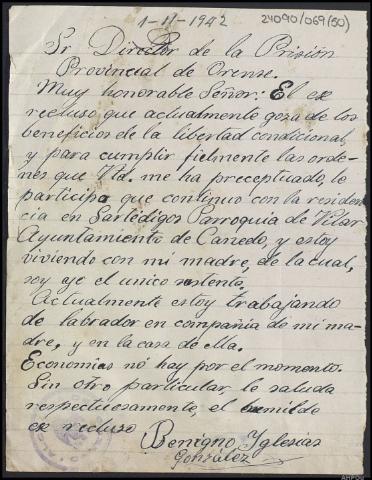 1-11-1942
24090/069(50)
Sr Director de la Prisión
Provincial de Orense.
Muy honorable Señor: El ex
recluso que actualmente goza de los
beneficios de la libertad condicional,
y para cumplir fielmente las orde-
nes que Vd. me ha preceptuado, le
participo que continuo con la residen
cia en Sarledigos Parroquia de Vilar
Ayuntamiento de Canedo, y estoy
viviendo con mi madre, de la cual,
soy yo el unico sustento,
Actualmente estoy trabajando
de labrador en compañia de mi ma-
dre, y en la casa de ella.
Economias nó hay por el momento.
Sin otro particular, le saluda
respectuosamente, el humilde
ex recluso
Benigno Yglesias
González
AHPOu